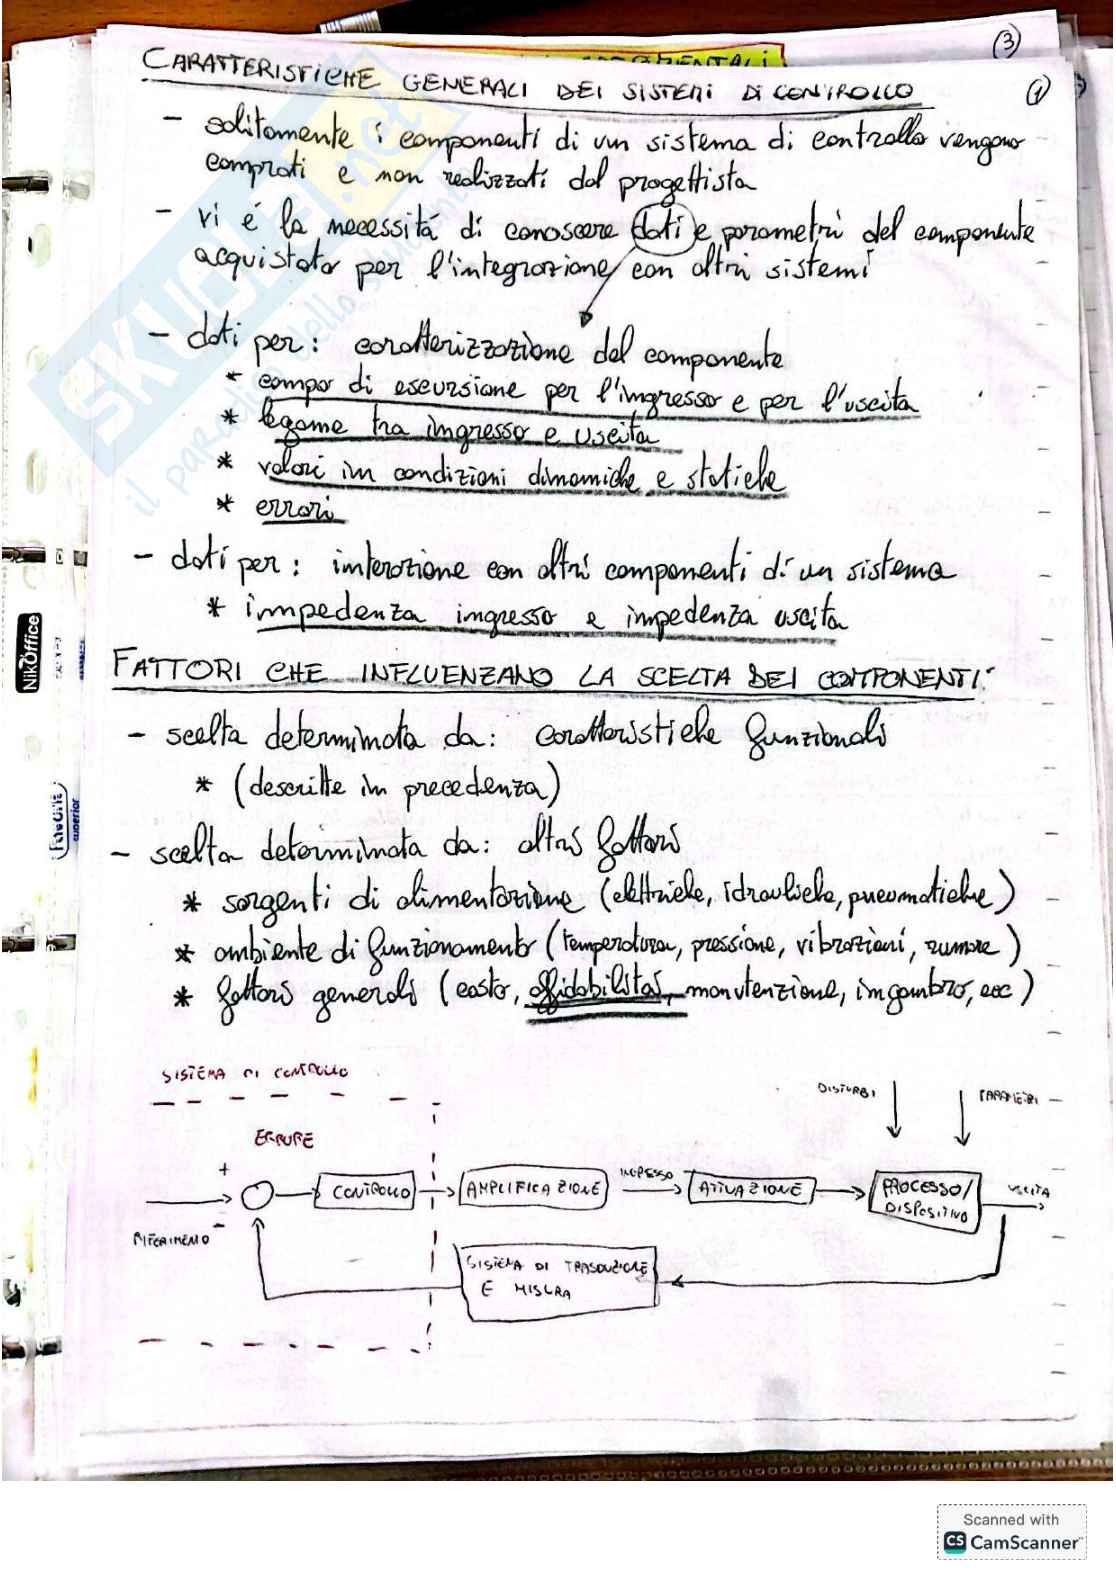 (3)
CARATTERISTICHE GENERALI DEI SISTEMI DI CONTROLLO
(1)
- solitamente i componenti di un sistema di controllo vengono
comprati e non realizzati dal progettista
- vi é la necessitá di conoscere dati e parametri del componente
acquistato per l'integrazione con altri sistemi
- dati per: caratterizzazione del componente
* campo di escursione per l'ingresso e per l'uscita
* legame tra ingresso e uscita
* valori in condizioni dinamiche e statiche
* errori
- dati per: interazione con altri componenti di un sistema
* impedenza ingresso e impedenza uscita
FATTORI CHE INFLUENZANO LA SCELTA DEI COMPONENTI
- scelta determinata da: caratteristiche funzionali
* (descritte in precedenza)
- scelta determinata da: altri fattori
* sorgenti di alimentazione (elettriche, idrauliche, pneumatiche)
* ambiente di funzionamento (temperatura, pressione, vibrazioni, rumore)
* fattori generali (costo, affidabilitá, manutenzione, ingombro, ecc)
SISTEMA DI CONTROLLO
DISTURBI
PARAMETRI
ERRORE
+
INGRESSO
CONTROLLO
AMPLIFICAZIONE
ATTUAZIONE
PROCESSO/
DISPOSITIVO
USCITA
RIFERIMENTO
-
SISTEMA DI TRASDUZIONE
E MISURA
NikOffice
SKUOLA.net
il paradiso dello studente
Scanned with
CS CamScanner